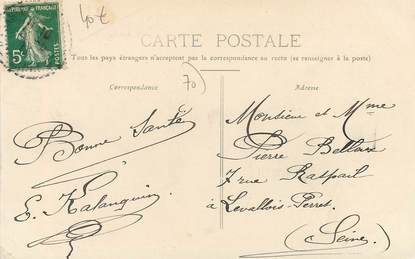 40€
RÉPUBLIQUE FRANÇAISE
5c
POSTES
CARTE POSTALE
Tous les pays étrangers n'acceptent pas la correspondance au recto (se renseigner à la poste)
Correspondance
70
Adresse
Bonne Santé
E. Kalanquin
Monsieur et Mme
Pierre Bellaux
7 rue Raspail
à Levallois-Perret
(Seine)